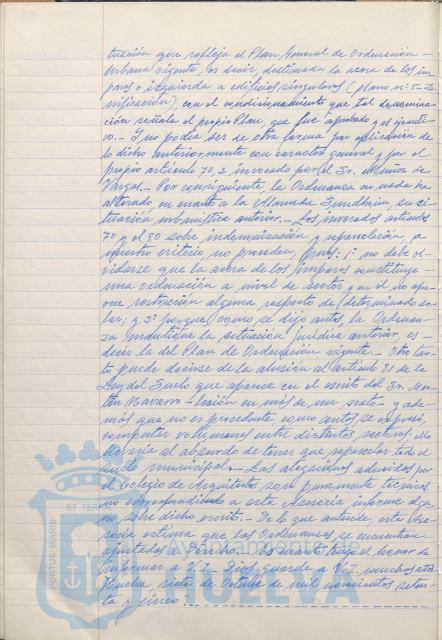 tuación que refleja el Plan General de Ordenación
Urbana vigente, es decir, destinada la acera de los im
pares o izquierda a edificios singulares (plano nº 5-Zo
nificación) con el condicionamiento que tal denomina-
ción señala el propio Plan, que fue aprobado y es ejecuti
vo.- Y no podía ser de otra forma por aplicación de
lo dicho anteriormente con caracter general, y por el
propio artículo 70,2 invocado por el Sr. Muñoz de
Vargas.- Por consiguiente, la Ordenanza en nada ha
alterado, en cuanto a la Alameda Sundheim, su si-
tuación urbanística anterior.- Los invocados articulos
70 y el 80 sobre indemnización y reparcelación, a
nuestro criterio, no proceden, pues: 1º no debe ol-
vidarse que la acera de los impares constituye
una ordenación a nivel de sector y en él no apa-
rece restricción alguna respecto de determinado so-
lar; y 2º porque, como se dijo antes, la Ordenan-
za mantiene la situación jurídica anterior, es
decir la del Plan de Ordenación vigente.- Otro tan-
to puede decirse de la alusión al artículo 81 de la
Ley del Suelo que aparece en el escrito del Sr. Mar-
tín Navarro -lesión en más de un sexto- y ade-
más que no es procedente, como antes se expresó,
computar volúmenes entre distintos sectores, ello
llevaría al absurdo de tener que reparcelar todo el
suelo municipal.- Las alegaciones aducidas por
el Colegio de Arquitectos, son puramente técnicas,
no correspondiendo a esta Asesoría informe algu-
no sobre dicho escrito.- De lo que antecede, esta Ase
soría estima que las Ordenanzas se encuentran
ajustadas a Derecho.- Es cuanto tengo el honor de
informar a V.I.- Dios guarde a V.I. muchos años
Huelva siete de Octubre de mil novecientos seten-
ta y cinco".
PORTUS MARIS
ET TERRAE
HUELVA